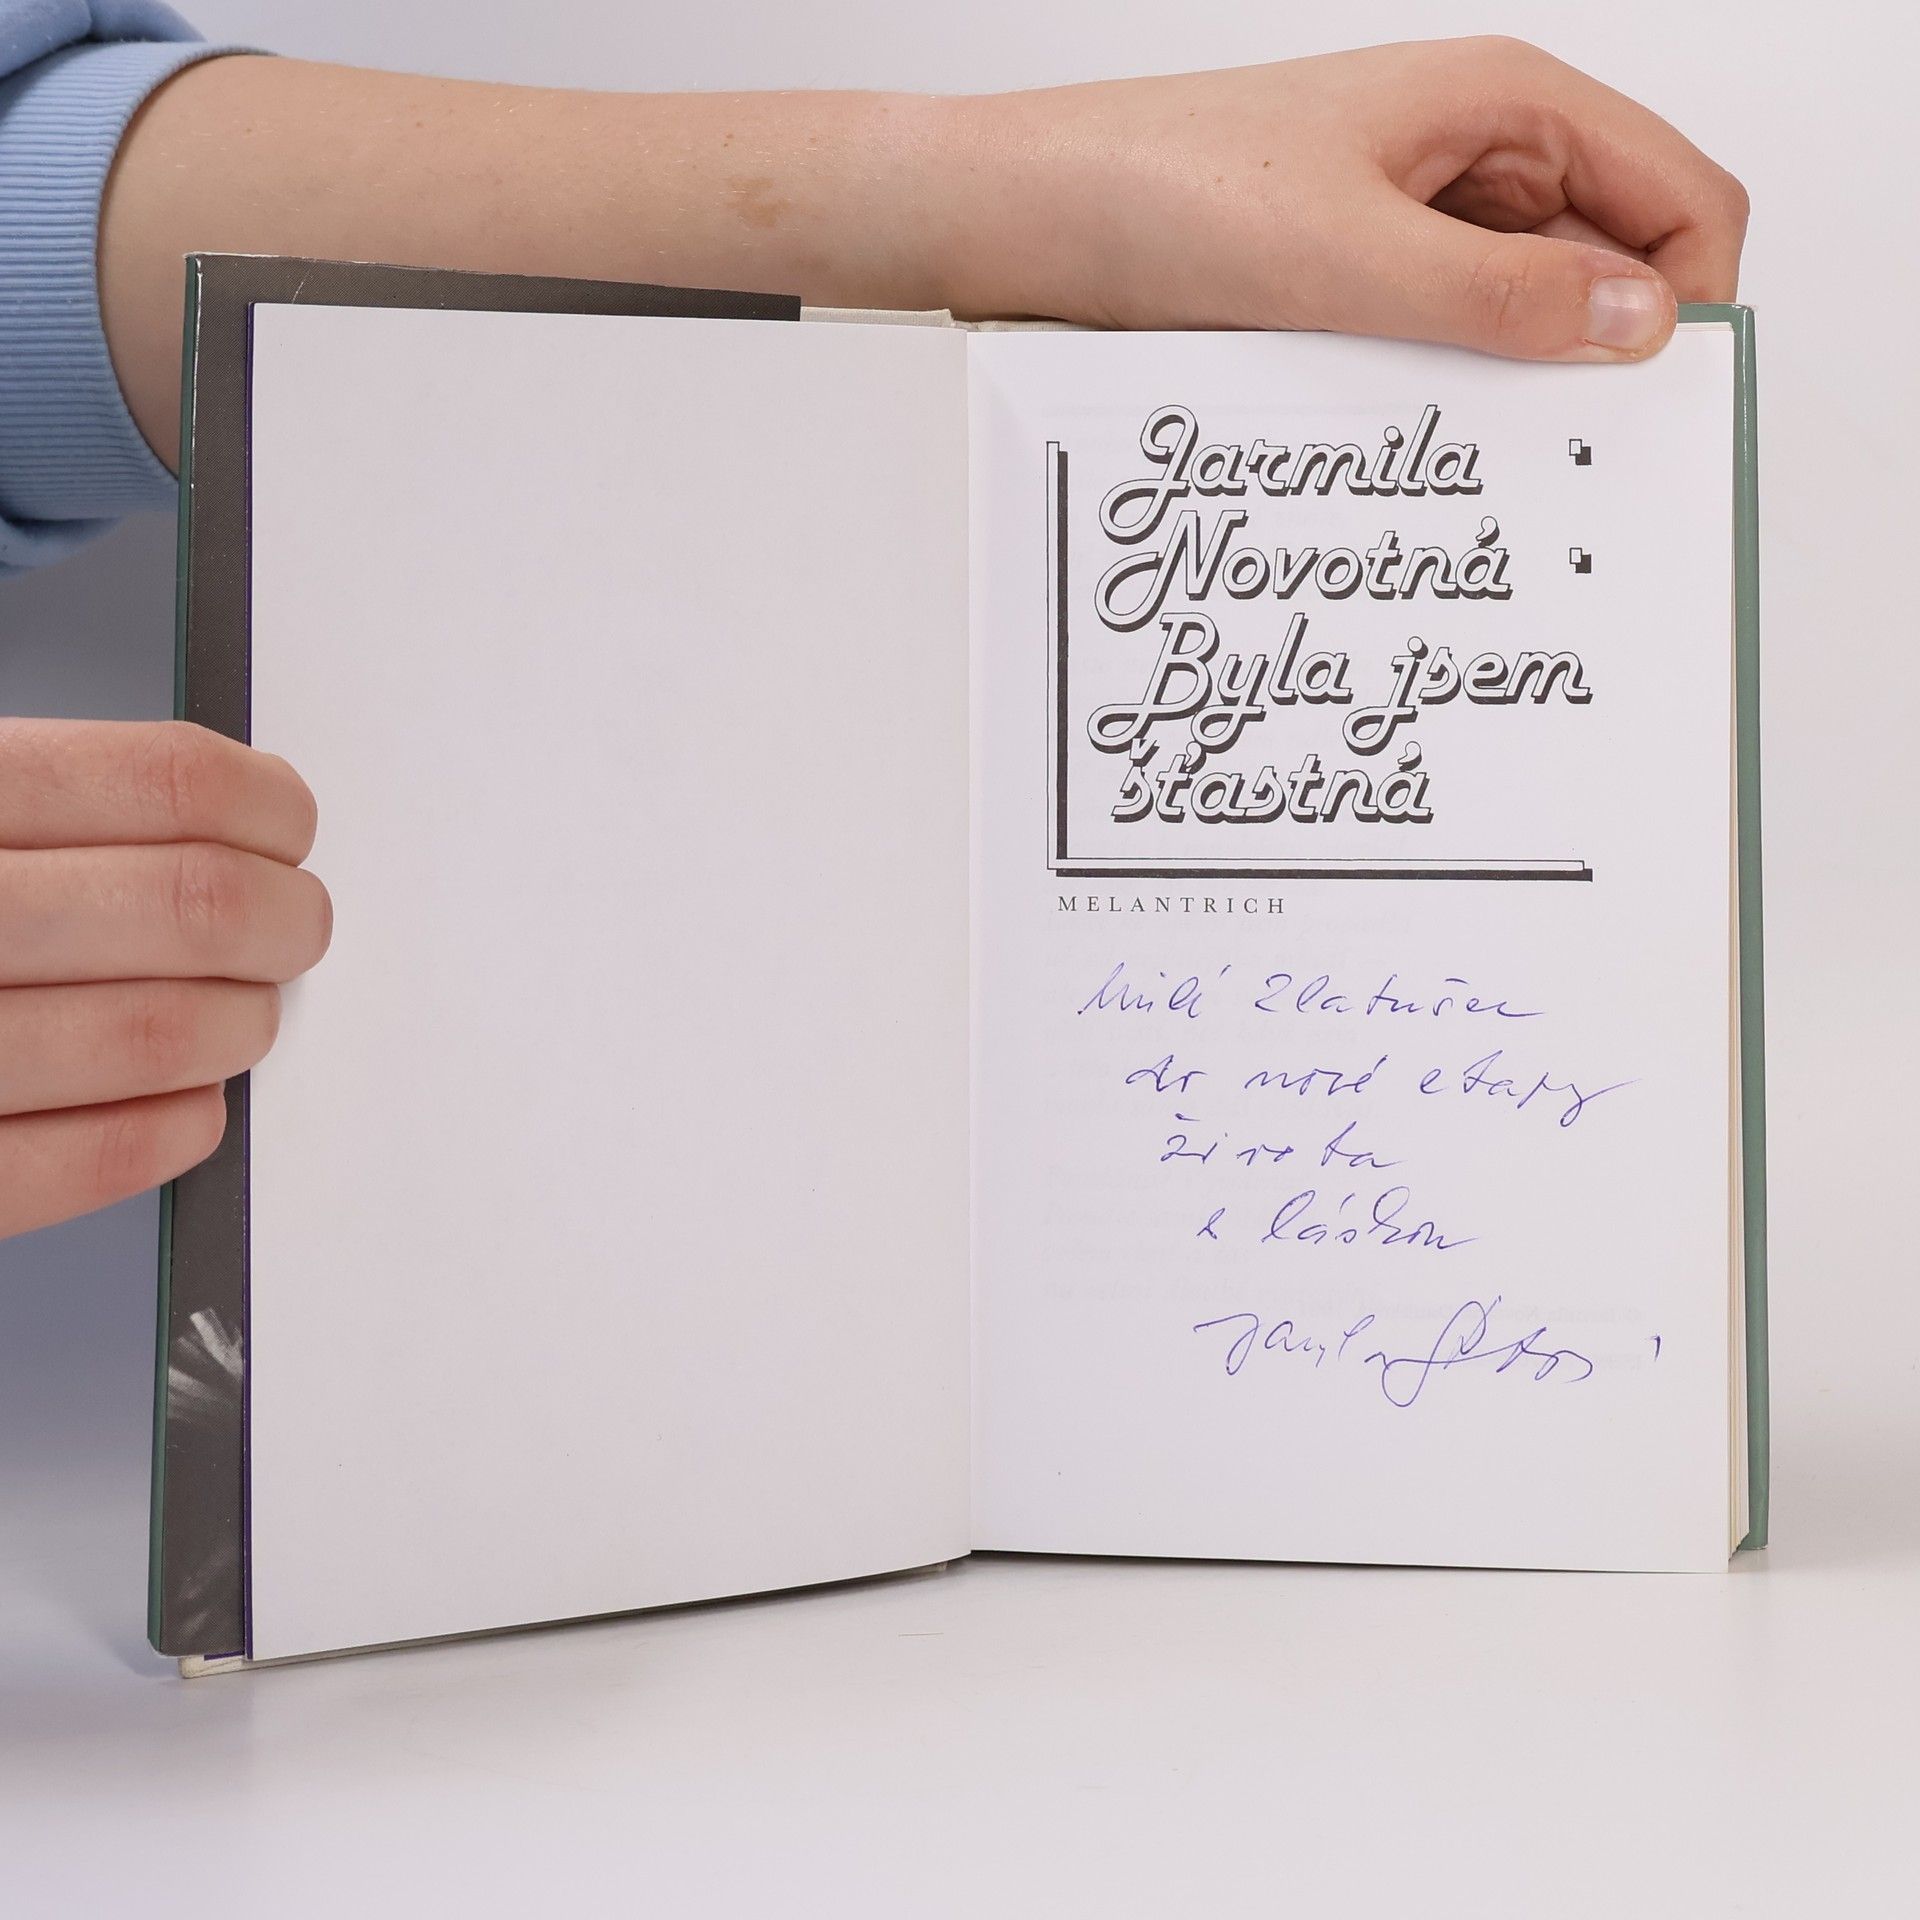 Jarmila
Novotná
Byla jsem
šťastná
MELANTRICH
Milé Zlatušce
do nové etapy
života
s láskou